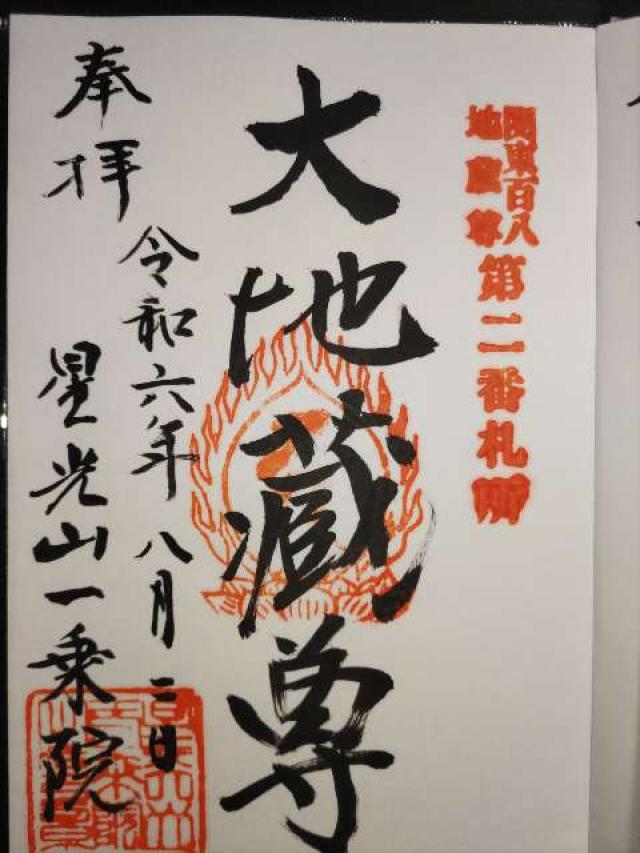 関東百八
地蔵尊
第二番札所
大地蔵尊
奉拝
令和六年八月二日
星光山一乗院